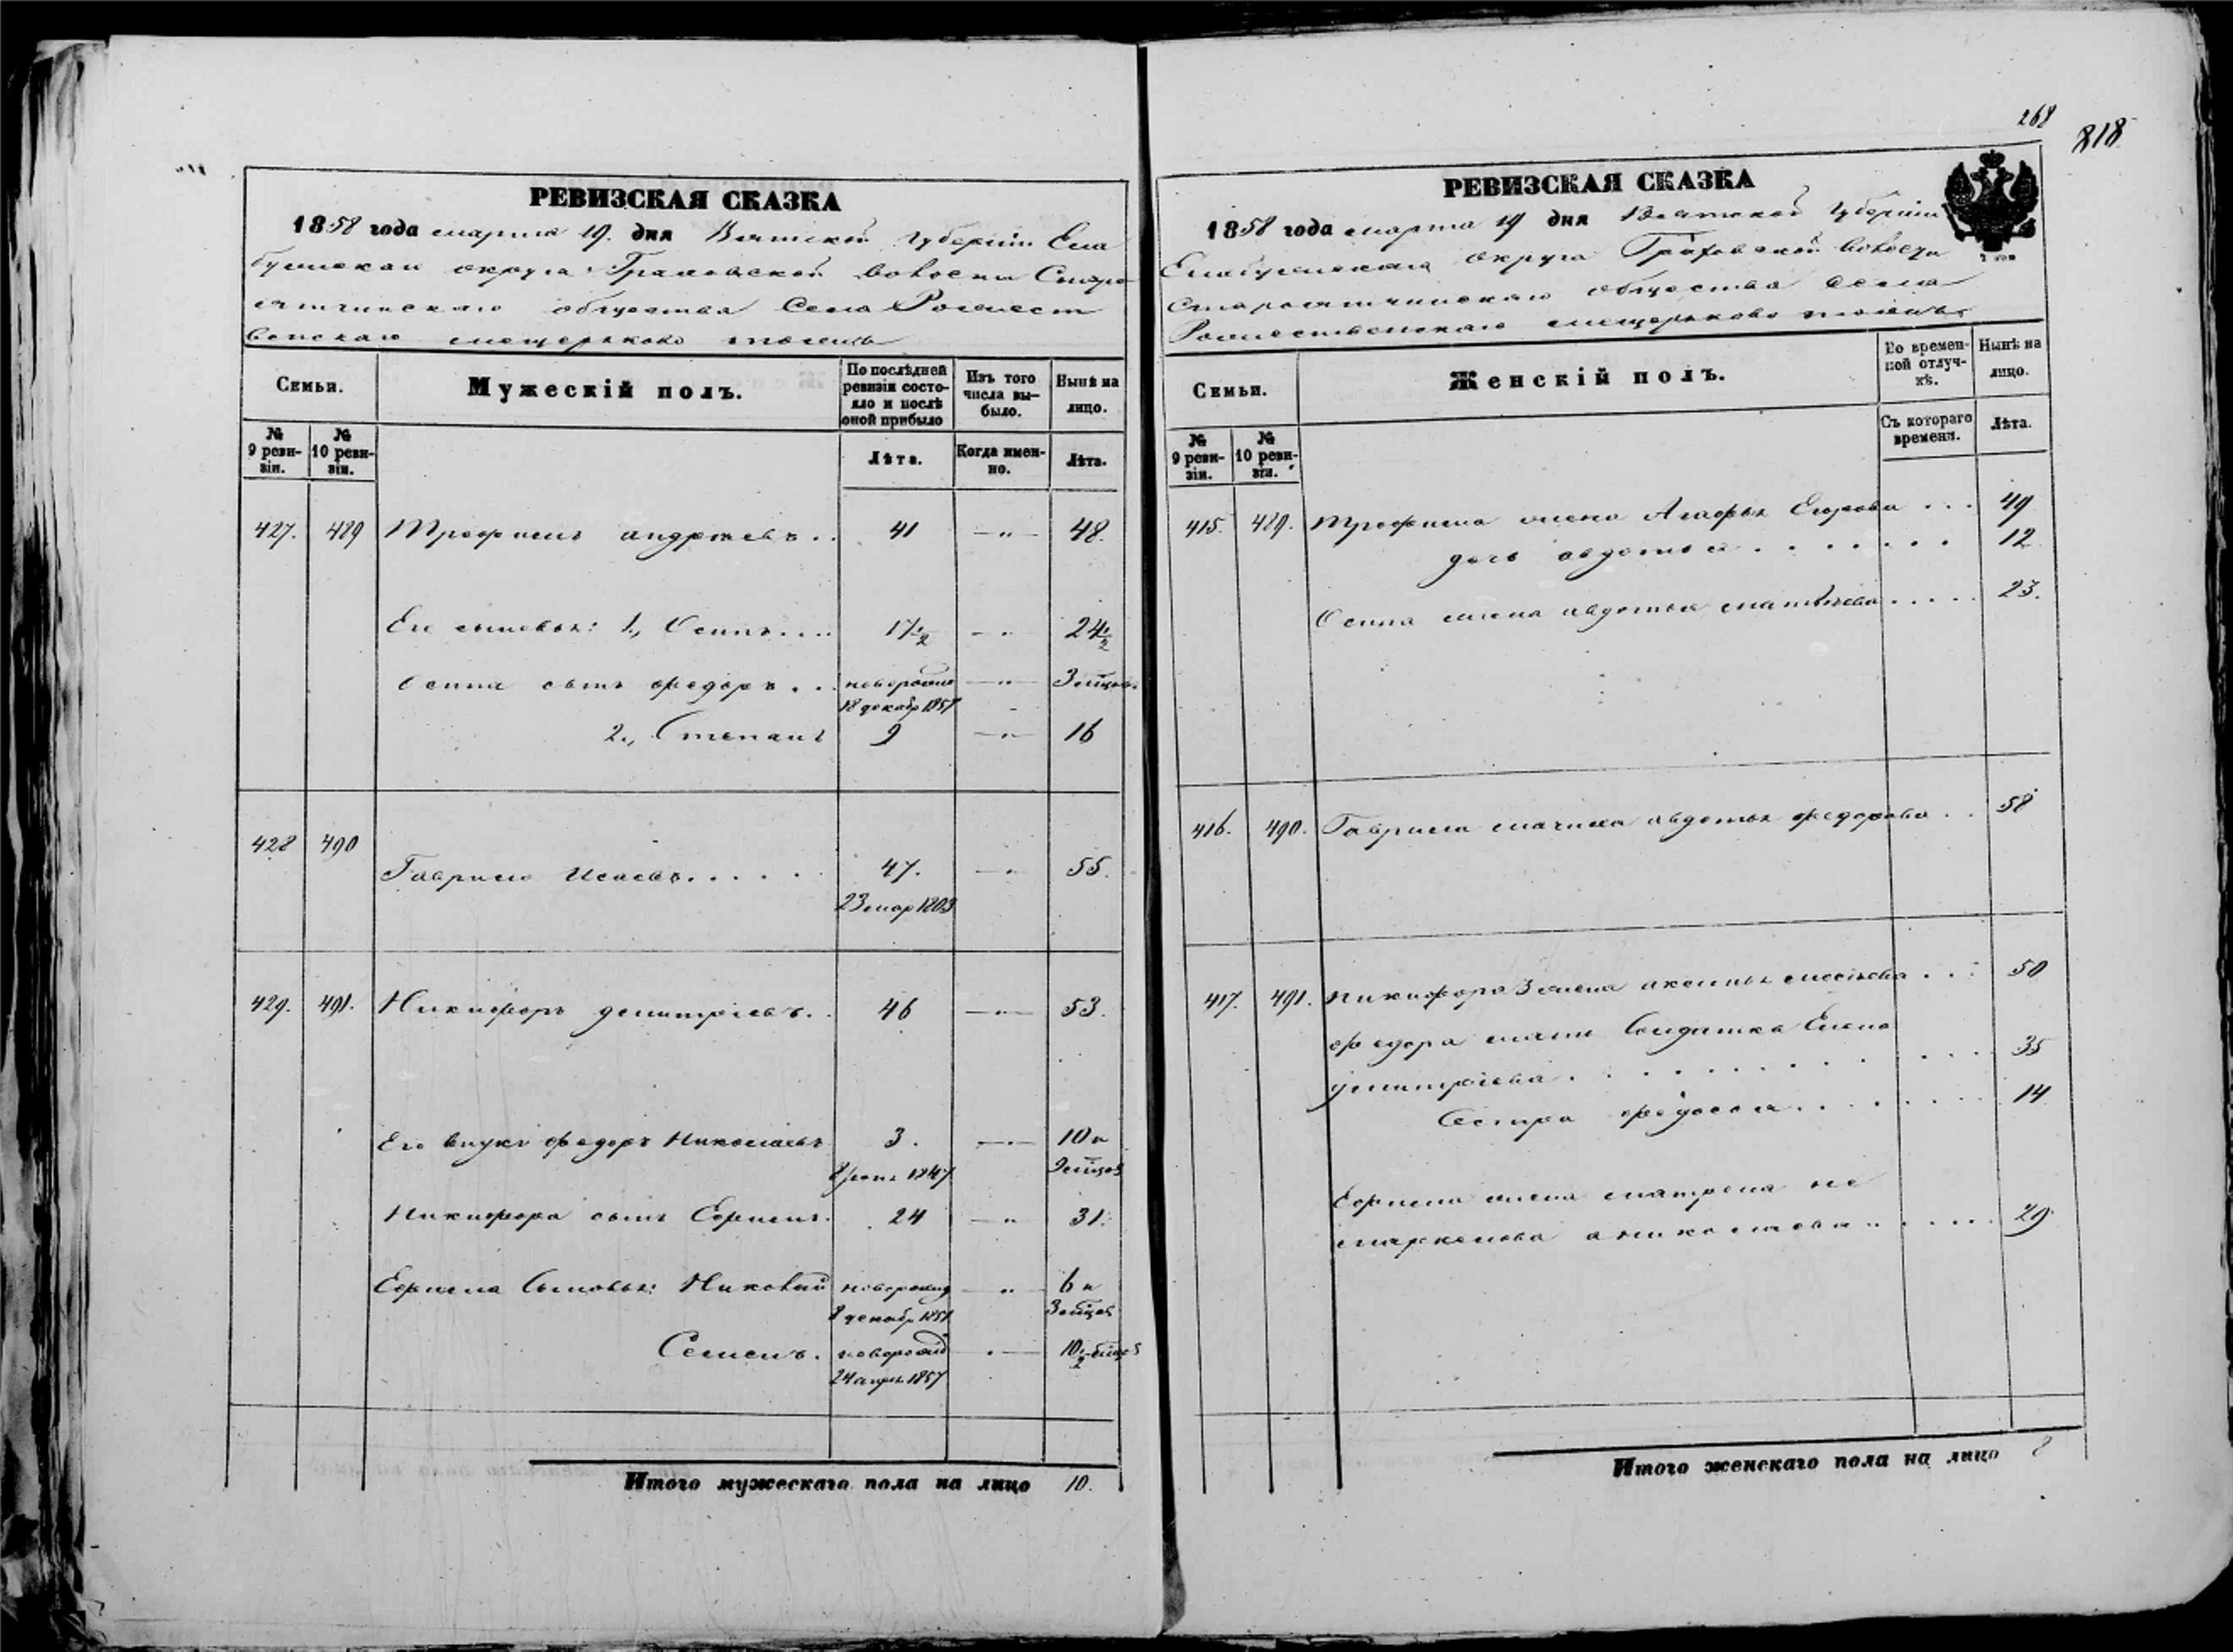 268
818
РЕВИЗСКАЯ СКАЗКА
1858 года марта 19. дня Вятской Губерніи Ела
бужскаго округа Граховской волости Старо
ятчинскаго общества Села Рождест
венскаго
Семьи.
Мужескій полъ.
По послѣдней ревизіи состояло и послѣ оной прибыло
Изъ того числа выбыло.
Нынѣ на лицо.
№ 9 ревизіи.
№ 10 ревизіи.
Лѣта.
Когда именно.
Лѣта.
427. 489 Трофимъ андреевъ.. 41 —"— 48.
Его сыновья: 1., Осипъ.... 17 1/2 —"— 24 1/2
Осипа сынъ федоръ... новорожд —"— 3 мѣцов
18 декабр 1857
2., Степанъ 9 —"— 16
428 490
Гаврило Исаевъ..... 47. —"— 55.
23 мар 1803
429. 491. Никифоръ дмитріевъ.. 46 —"— 53.
Его внукъ федоръ Николаевъ 3. —"— 10 и
1847 9 мѣцов
Никифора сынъ Ефимъ. 24 —"— 31.
Ефима Сыновья: Николай новорожд —"— 6 и
8 декабр 1851 3 мѣцов
Семенъ. новорожд —"— 10 1/2 мѣцов
24 апрл 1857
Итого мужескаго пола на лицо 10.
РЕВИЗСКАЯ СКАЗКА
1858 года марта 19 дня Вятской Губерніи
Елабужскаго округа Граховской волости
Староятчинскаго общества села
Рождественскаго
Семьи.
Женскій полъ.
Во временной отлучкѣ.
Нынѣ на лицо.
№ 9 ревизіи.
№ 10 ревизіи.
Съ котораго времени.
Лѣта.
415. 489. Трофима жена Агафья Егорова ... 49
дочь авдотья ....... 12
Осипа жена авдотья матвѣева ..... 23.
416. 490. Гаврила мачиха авдотья федорова .. 58
417. 491. Никифора 3 жена аксинья ... 50
федора мать Солдатка Елена
дмитріева ......... 35
Сестра федосья ....... 14
Ефима жена матрена не
маркелова а николаева ..... 29.
Итого женскаго пола на лицо 8